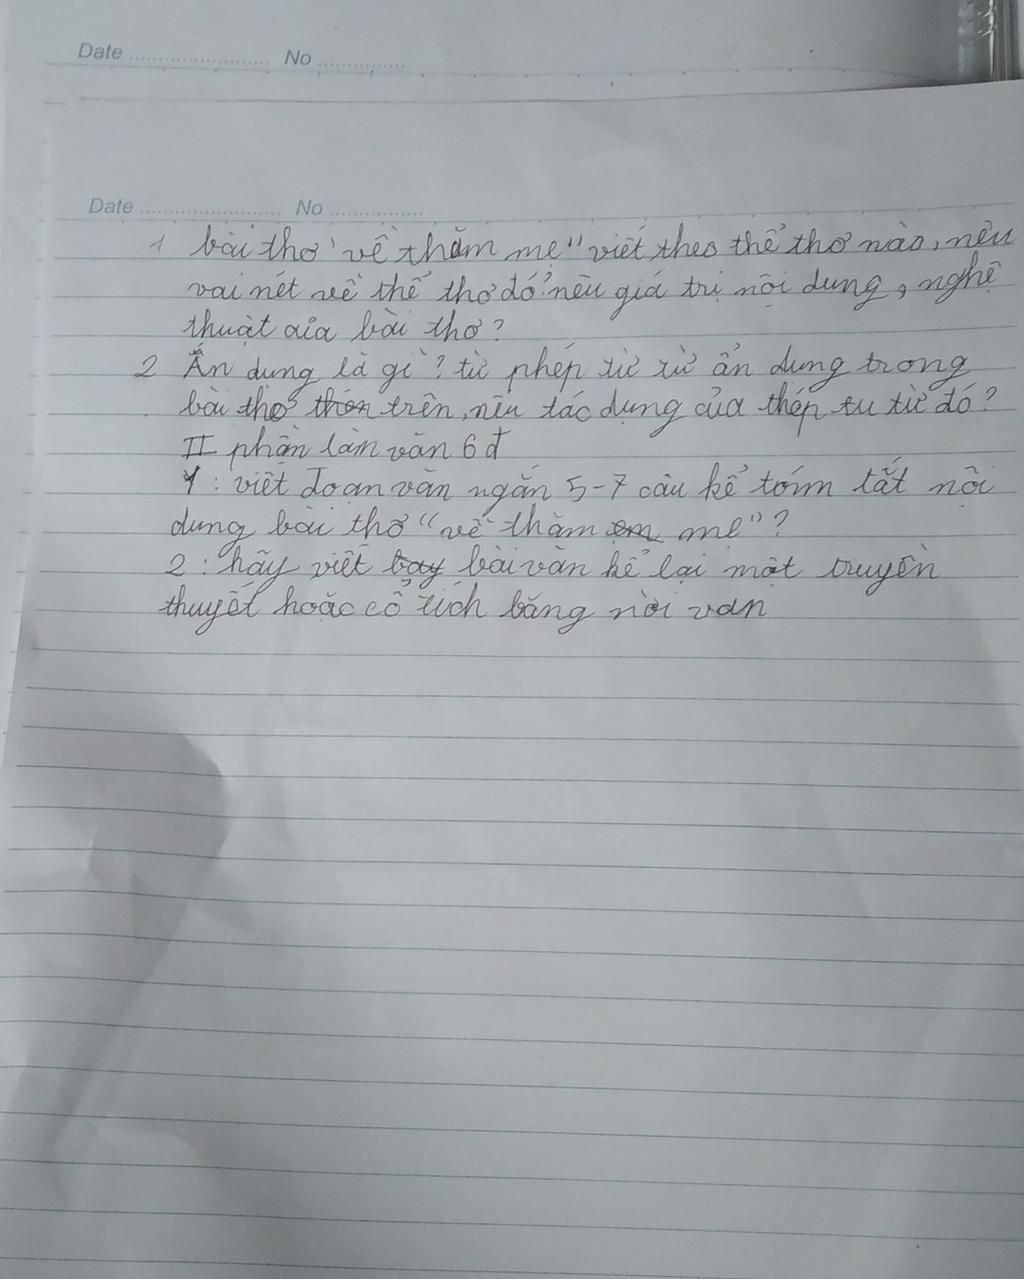 Date .................... No ................
Date .................... No ................
1 bài thơ "về thăm mẹ" viết theo thể thơ nào, nêu
vài nét về thể thơ đó? nêu giá trị nội dung, nghệ
thuật của bài thơ?
2 Ẩn dụng là gì? từ phép từ từ ẩn dung trong
bài thơ trên, nêu tác dụng của thép tu từ đó?
II phần làm văn 6 đ
1 : viết đoạn văn ngắn 5-7 câu kể tóm tắt nội
dung bài thơ "về thăm mẹ"?
2 : hãy viết bài văn kể lại một truyền
thuyết hoặc cổ tích bằng nời văn